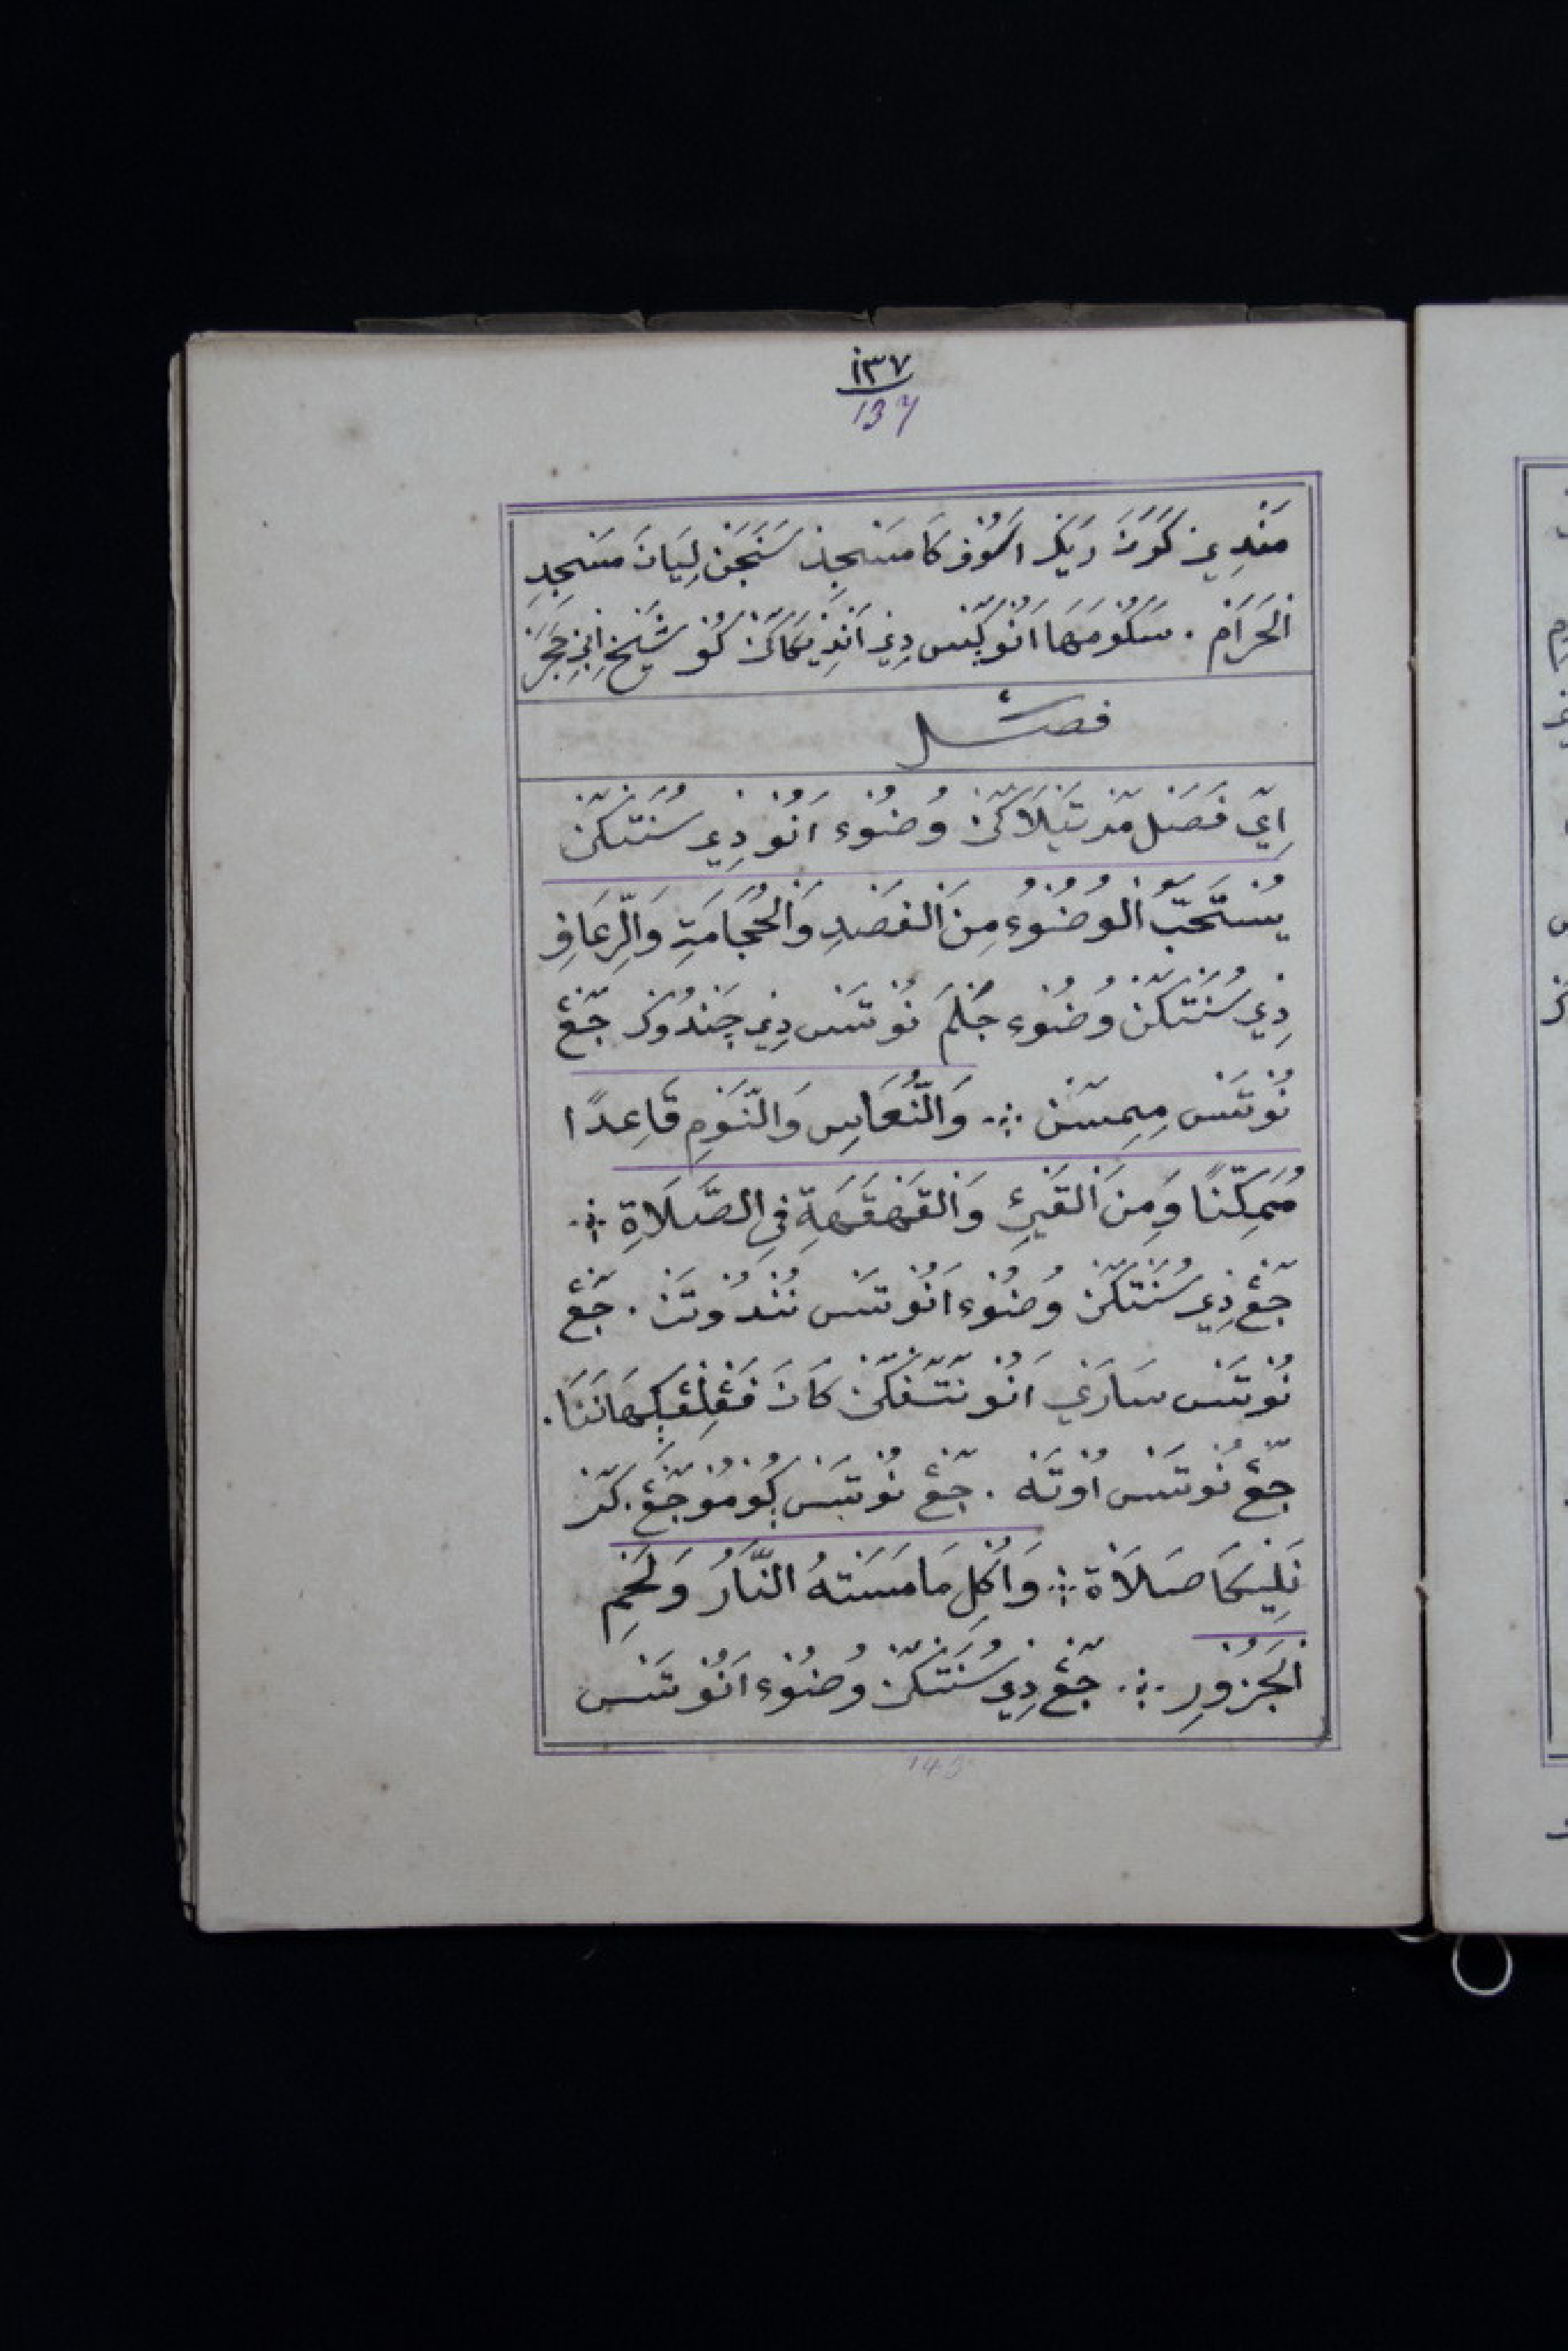 ١٣٧
137
مَنْدِيْ كَوُنَ دَيْكَرَ اَسُوْفْ كَا مَسْجِدْ سَنْجَنْ لِيَانَ مَسْجِدِ
الْحَرَامْ . سَكُوْمَهَا اَنُوْكَنْس دِيْ اَنْدِيْكَاكَنْ كُوْ شَيْخْ اِبْنِ حَجَرْ
فصل
اِيْ فَصَلْ مَرْتَيْلَاكَنْ وُضُوْءْ اَنُوْ دِيْ سُنَتْكَنْ
يُسْتَحَبُّ الْوُضُوْءُ مِنَ الْفَصْدِ وَالْحُجَامَةِ وَالرِّعَافِ
دِيْ سُنَتْكَنْ وُضُوْءْ جُلْمَ نُوْتَسْ دِيْ چَنْدُوْكْ جَڠْ
نُوْتَسْ مِمِسَنْ ؞ وَالنُّعَاسِ وَالنَّوْمِ قَاعِدًا
مُمَكِّنًا وَمِنَ الْقَيْئِ وَالْقَهْقَهَةِ فِي الصَّلَاةِ ؞
جَڠْ دِيْ سُنَتْكَنْ وُضُوْءْ اَنُوْتَسْ نُنْدُوْتَنْ . جَڠْ
نُوْتَسْ سَارَيْ اَنُوْ نَتَفْكَنْ كَانَ ڤَڠْلِڠْڮِهَانَنَا .
جَڠْ نُوْتَسْ اُوْتَهْ . جَڠْ نُوْتَسْ ڮُوْمُوْجَڠْ . كَرْ
نَلِيْكَا صَلَاةْ ؞ وَاَكْلِ مَا مَسَّتْهُ النَّارُ وَلَحْمِ
الْجَزُوْرِ ؞ جَڠْ دِيْ سُنَتْكَنْ وُضُوْءْ اَنُوْتَسْ